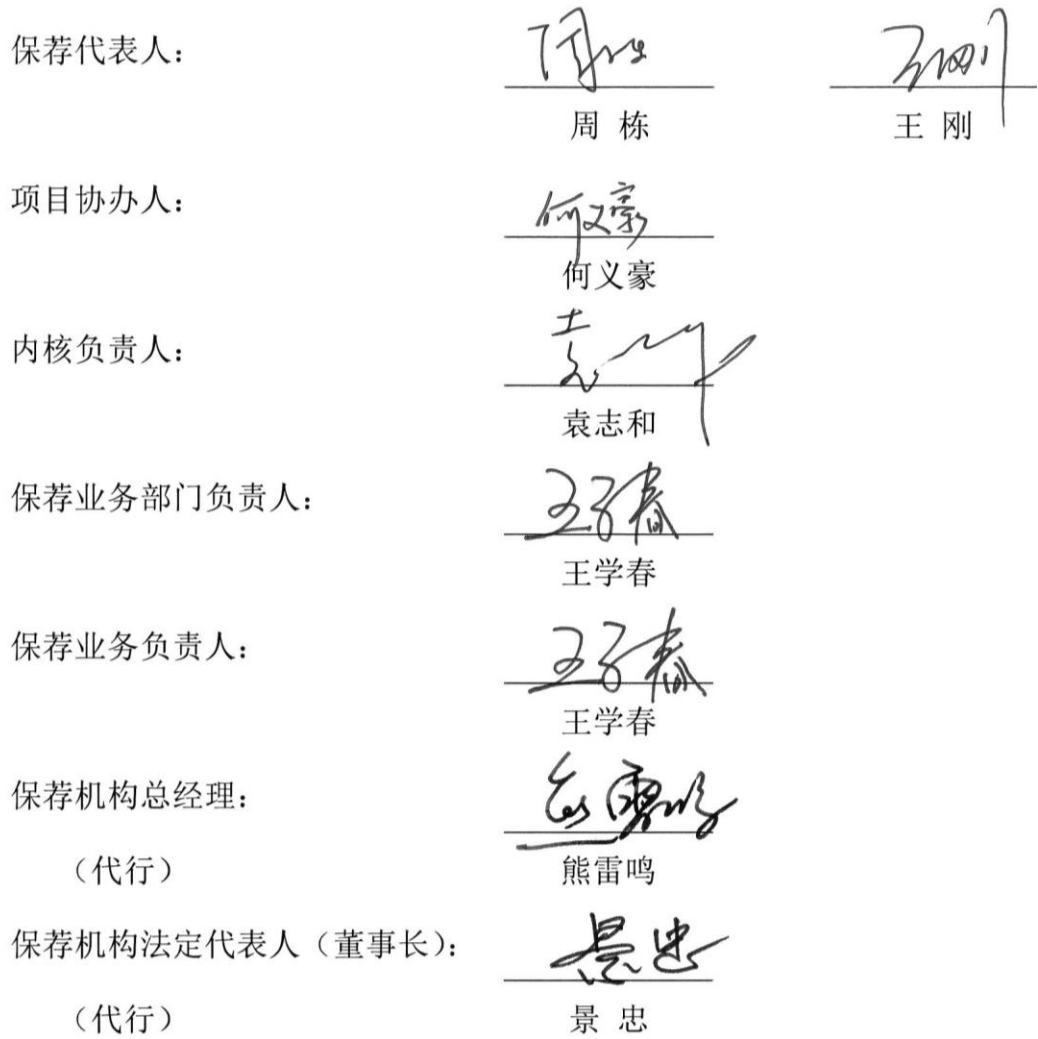 保荐代表人：
周 栋 王 刚
项目协办人：
何义豪
何义豪
内核负责人：
袁志和
保荐业务部门负责人：
王学春
保荐业务负责人：
王学春
保荐机构总经理：
（代行）
熊雷鸣
保荐机构法定代表人（董事长）：
景忠
（代行）
景 忠